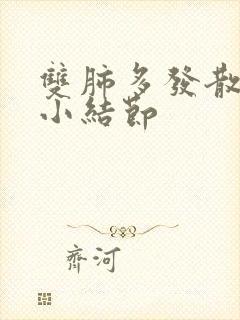 雙肺多發散
小結節
齊河